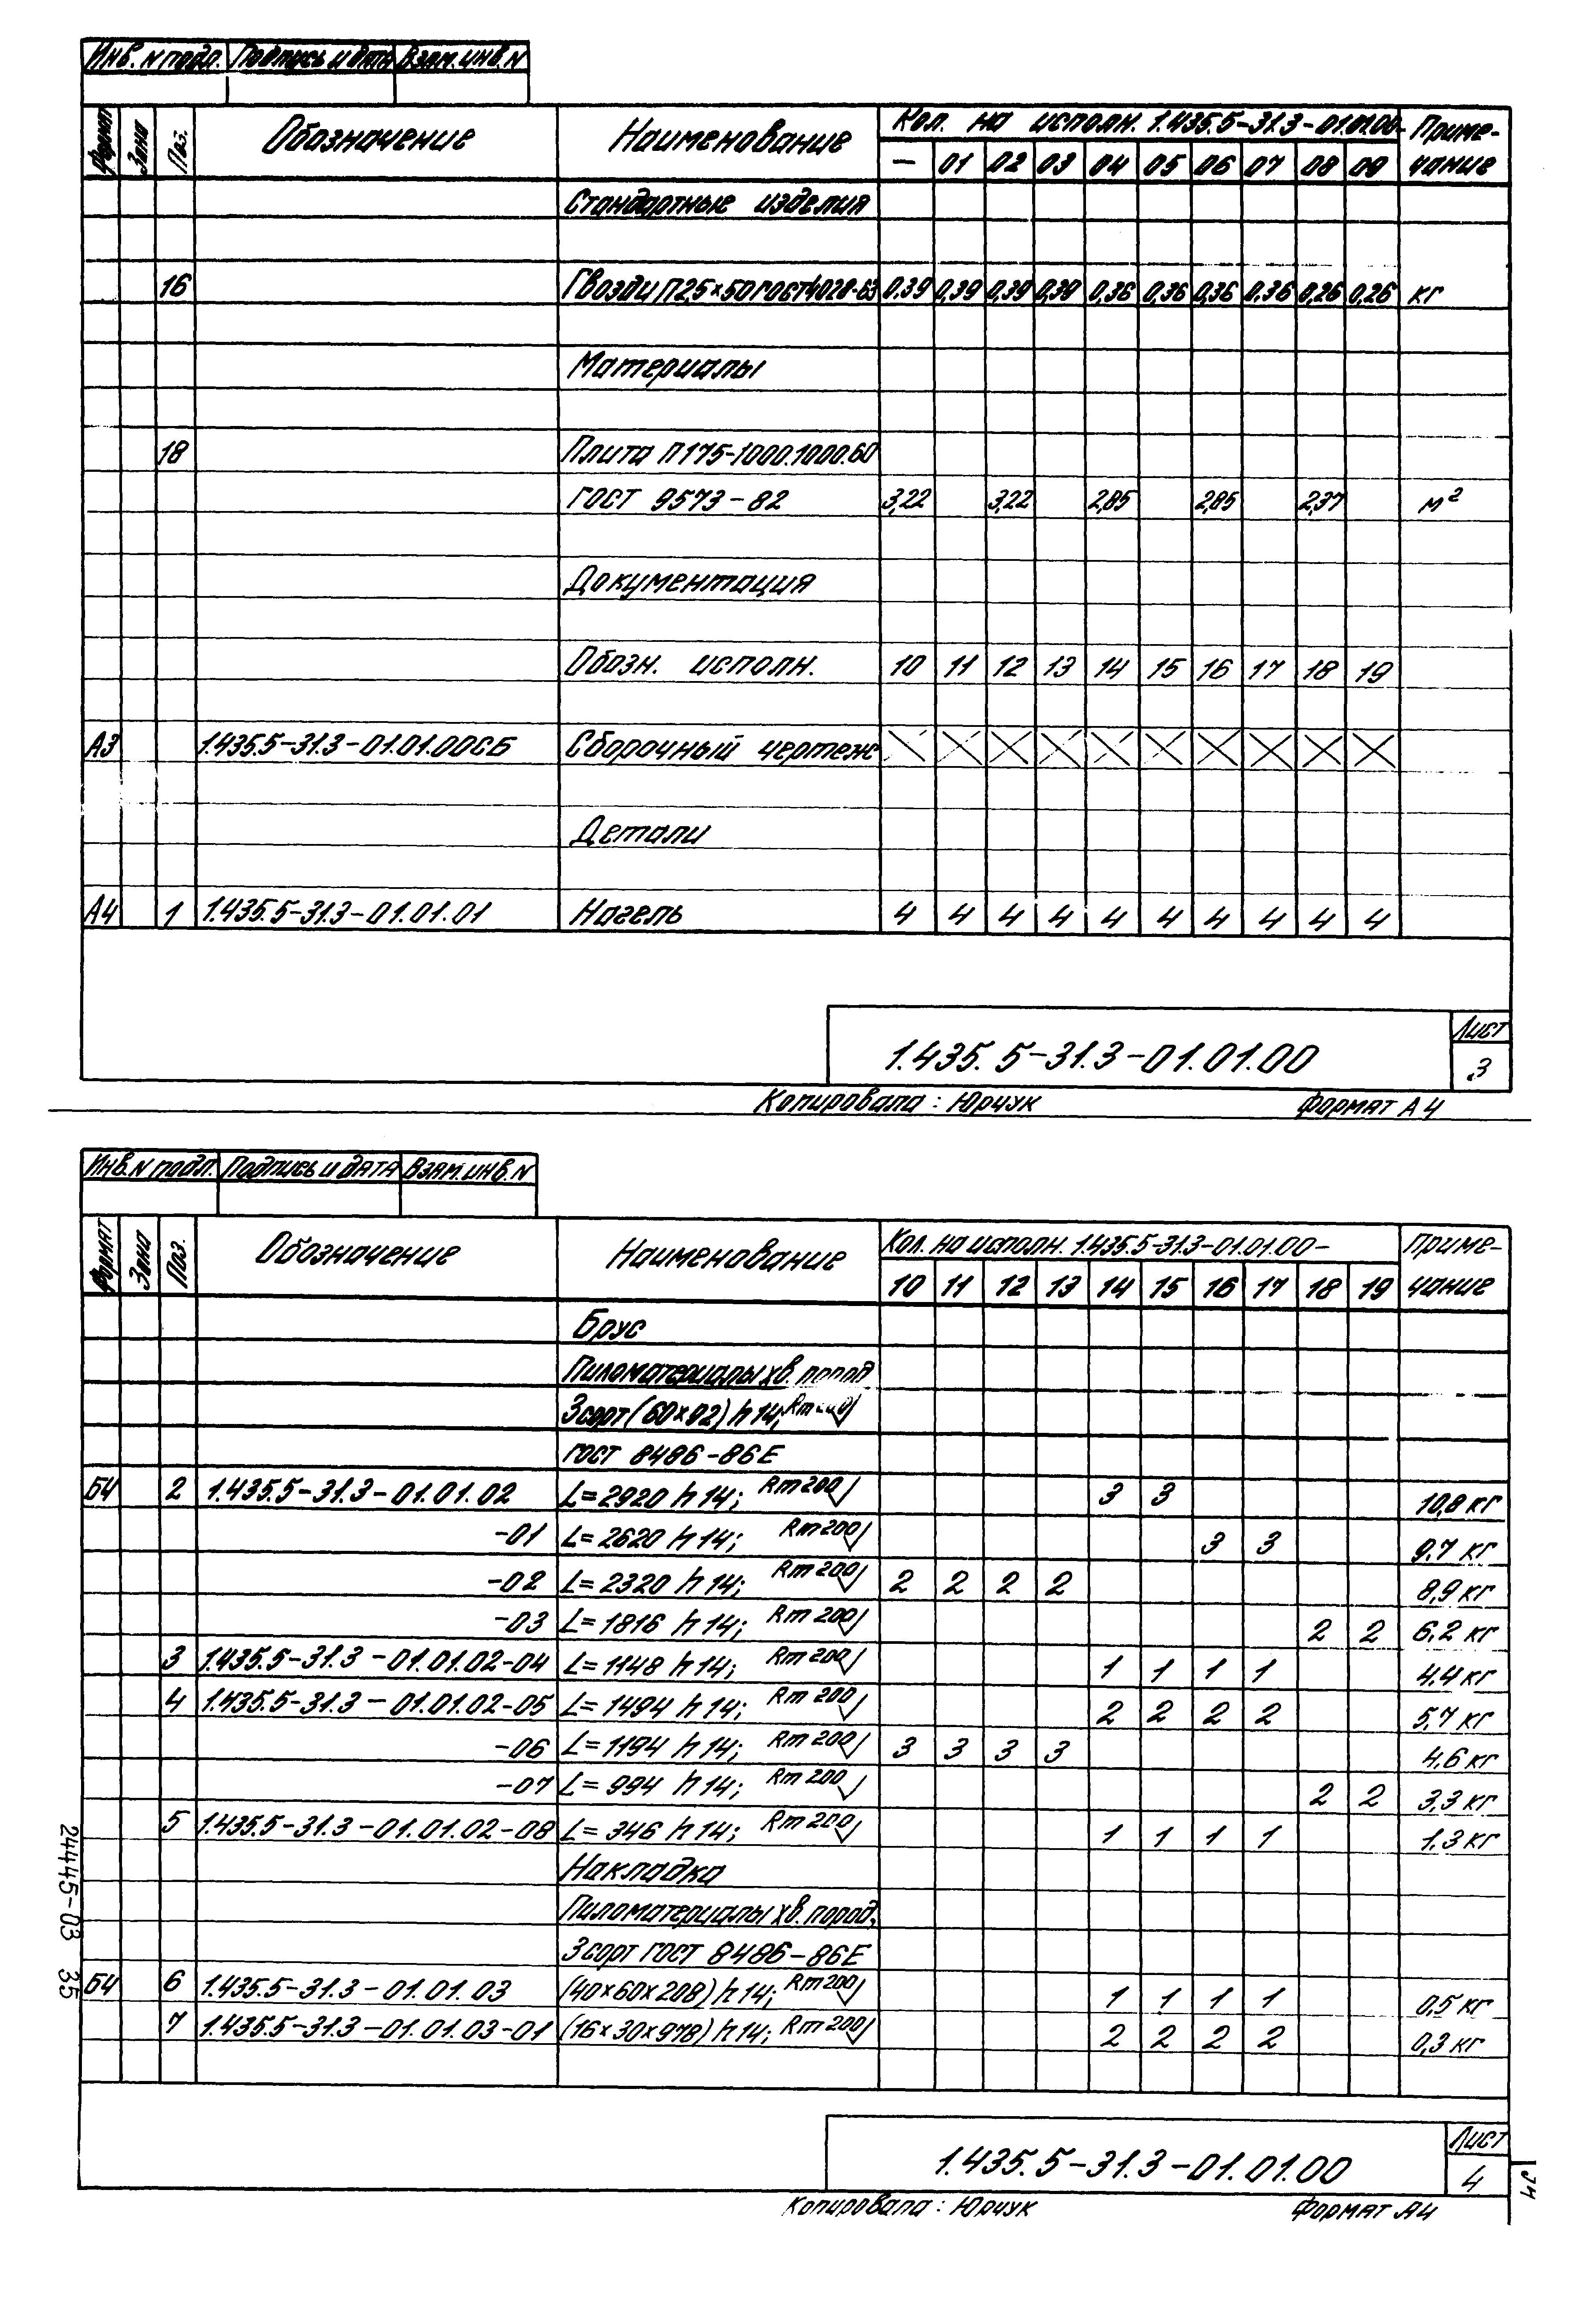 Инв. N подл. Подпись и дата Взам. инв. N
Формат Зона Поз. Обозначение Наименование Кол. на исполн. 1.435.5-31.3-01.01.00- Приме-
— 01 02 03 04 05 06 07 08 09 чание
Стандартные изделия
16 Гвозди П2,5×50 ГОСТ 4028-63 0,39 0,39 0,39 0,39 0,36 0,36 0,36 0,36 0,26 0,26 кг
Материалы
18 Плита П175-1000.1000.60
ГОСТ 9573-82 3,22 3,22 2,85 2,85 2,37 м²
Документация
Обозн. исполн. 10 11 12 13 14 15 16 17 18 19
А3 1.435.5-31.3-01.01.00СБ Сборочный чертеж
Детали
А4 1 1.435.5-31.3-01.01.01 Нагель 4 4 4 4 4 4 4 4 4 4
1.435.5-31.3-01.01.00 Лист
3
Копировала: Юрчук Формат А4
Инв. N подл. Подпись и дата Взам. инв. N
Формат Зона Поз. Обозначение Наименование Кол. на исполн. 1.435.5-31.3-01.01.00- Приме-
10 11 12 13 14 15 16 17 18 19 чание
Брус
Пиломатериалы хв. пород
3 сорт (60×92) h14; Rm 200
ГОСТ 8486-86Е
Б4 2 1.435.5-31.3-01.01.02 L=2920 h14; Rm 200 3 3 10,8 кг
-01 L=2620 h14; Rm 200 3 3 9,7 кг
-02 L=2320 h14; Rm 200 2 2 2 2 8,9 кг
-03 L=1816 h14; Rm 200 2 2 6,2 кг
3 1.435.5-31.3-01.01.02-04 L=1148 h14; Rm 200 1 1 1 1 4,4 кг
4 1.435.5-31.3-01.01.02-05 L=1494 h14; Rm 200 2 2 2 2 5,7 кг
-06 L=1194 h14; Rm 200 3 3 3 3 4,6 кг
-07 L=994 h14; Rm 200 2 2 3,3 кг
5 1.435.5-31.3-01.01.02-08 L=346 h14; Rm 200 1 1 1 1 1,3 кг
Накладка
Пиломатериалы хв. пород,
3 сорт ГОСТ 8486-86Е
Б4 6 1.435.5-31.3-01.01.03 (40×60×208) h14; Rm 200 1 1 1 1 0,5 кг
7 1.435.5-31.3-01.01.03-01 (16×30×978) h14; Rm 200 2 2 2 2 0,3 кг
1.435.5-31.3-01.01.00 Лист
4
Копировала: Юрчук Формат А4
24445-03 35